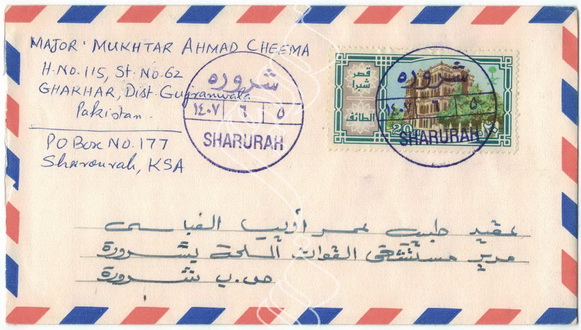 MAJOR: MUKHTAR AHMAD CHEEMA
H.No. 115, St. No. 62
GHAKHAR, Dist Gujranwala
Pakistan.
PO Box No. 177
Sharourah, KSA
شروره
١٤٠٧ ٦ ٥
SHARURAH
قصر
شبرا
الطائف
20
شروره
١٤٠٧ ٦ ٥
SHARURAH
عقيد طبيب عمر أديب العباسى
مدير مستشفى القوات المسلحة بشرورة
ص.ب شرورة